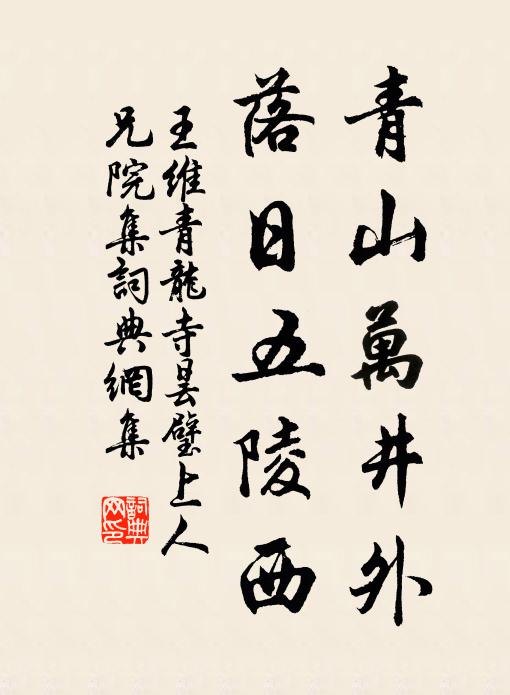 青山萬井外
落日五陵西
王維青龍寺曇壁上人
兄院集詞典網集
詞典
网印